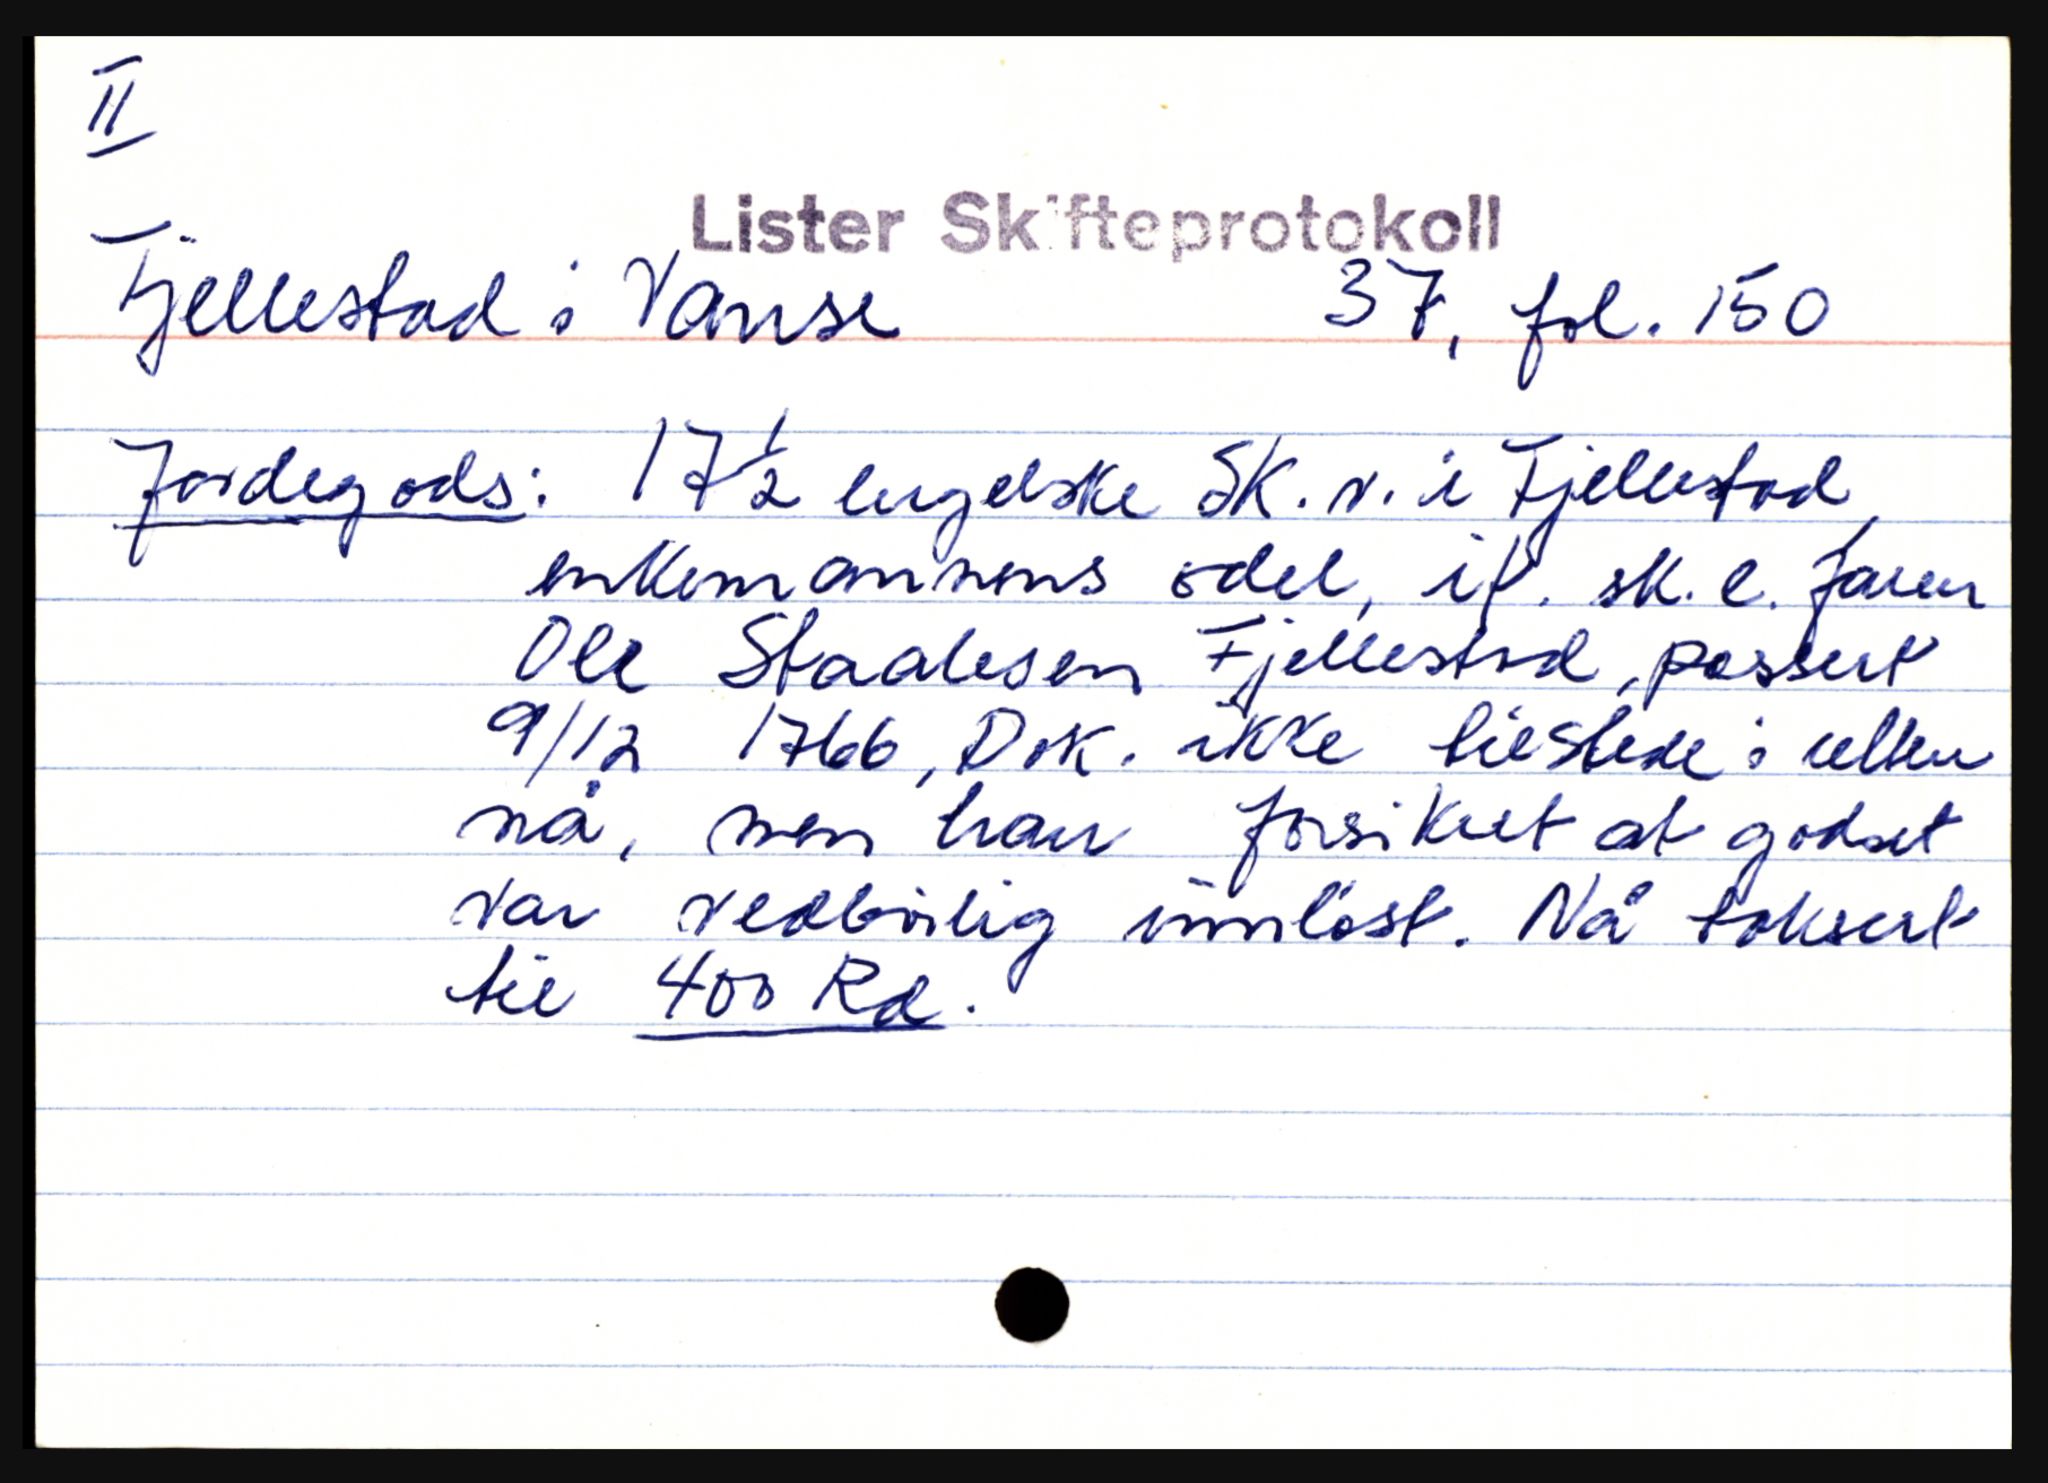 II
Lister Skifteprotokoll
Fjellestad i Vanse 37, fol. 150
Jordegods: 17 1/2 engelske Sk. v. i Fjellestad,
enkemannens odel, if. sk. e. faren
Ole Staalesen Fjellestad, passert
9/12 1766, Dok. ikke tilstede i retten
nå, men han forsikret at godset
var vedbørlig innløst. Nå taksert
til 400 Rd.